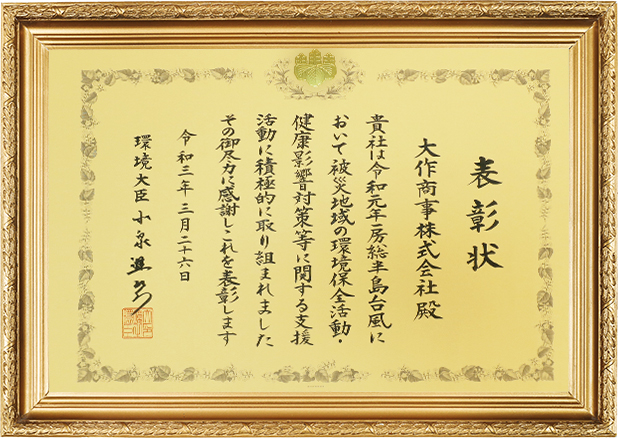 表彰状
大作商事株式会社殿
貴社は令和元年房総半島台風に
おいて被災地域の環境保全活動・
健康影響対策等に関する支援
活動に積極的に取り組まれました
その御尽力に感謝しこれを表彰します
令和三年三月二十六日
環境大臣 小泉進次郎